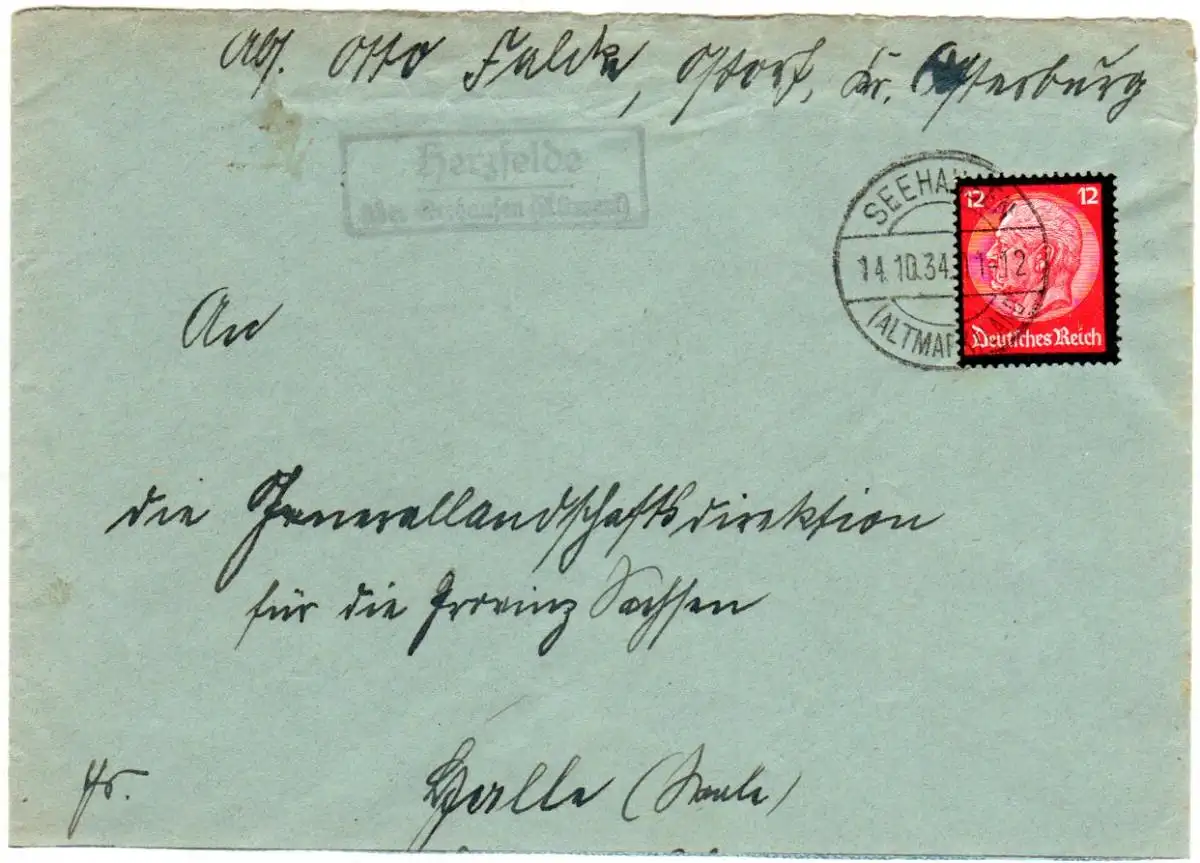 Abs. Otto Falcke, Ostorf, Kr. Osterburg
Herzfelde
über Seehausen (Altmark)
SEEHAUSEN
14.10.34. 11-12
(ALTMARK)
12 12
Deutsches Reich
An
die Generallandschaftsdirektion
für die Provinz Sachsen
Halle (Saale)